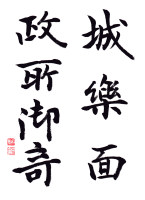 城樂面
政所御奇